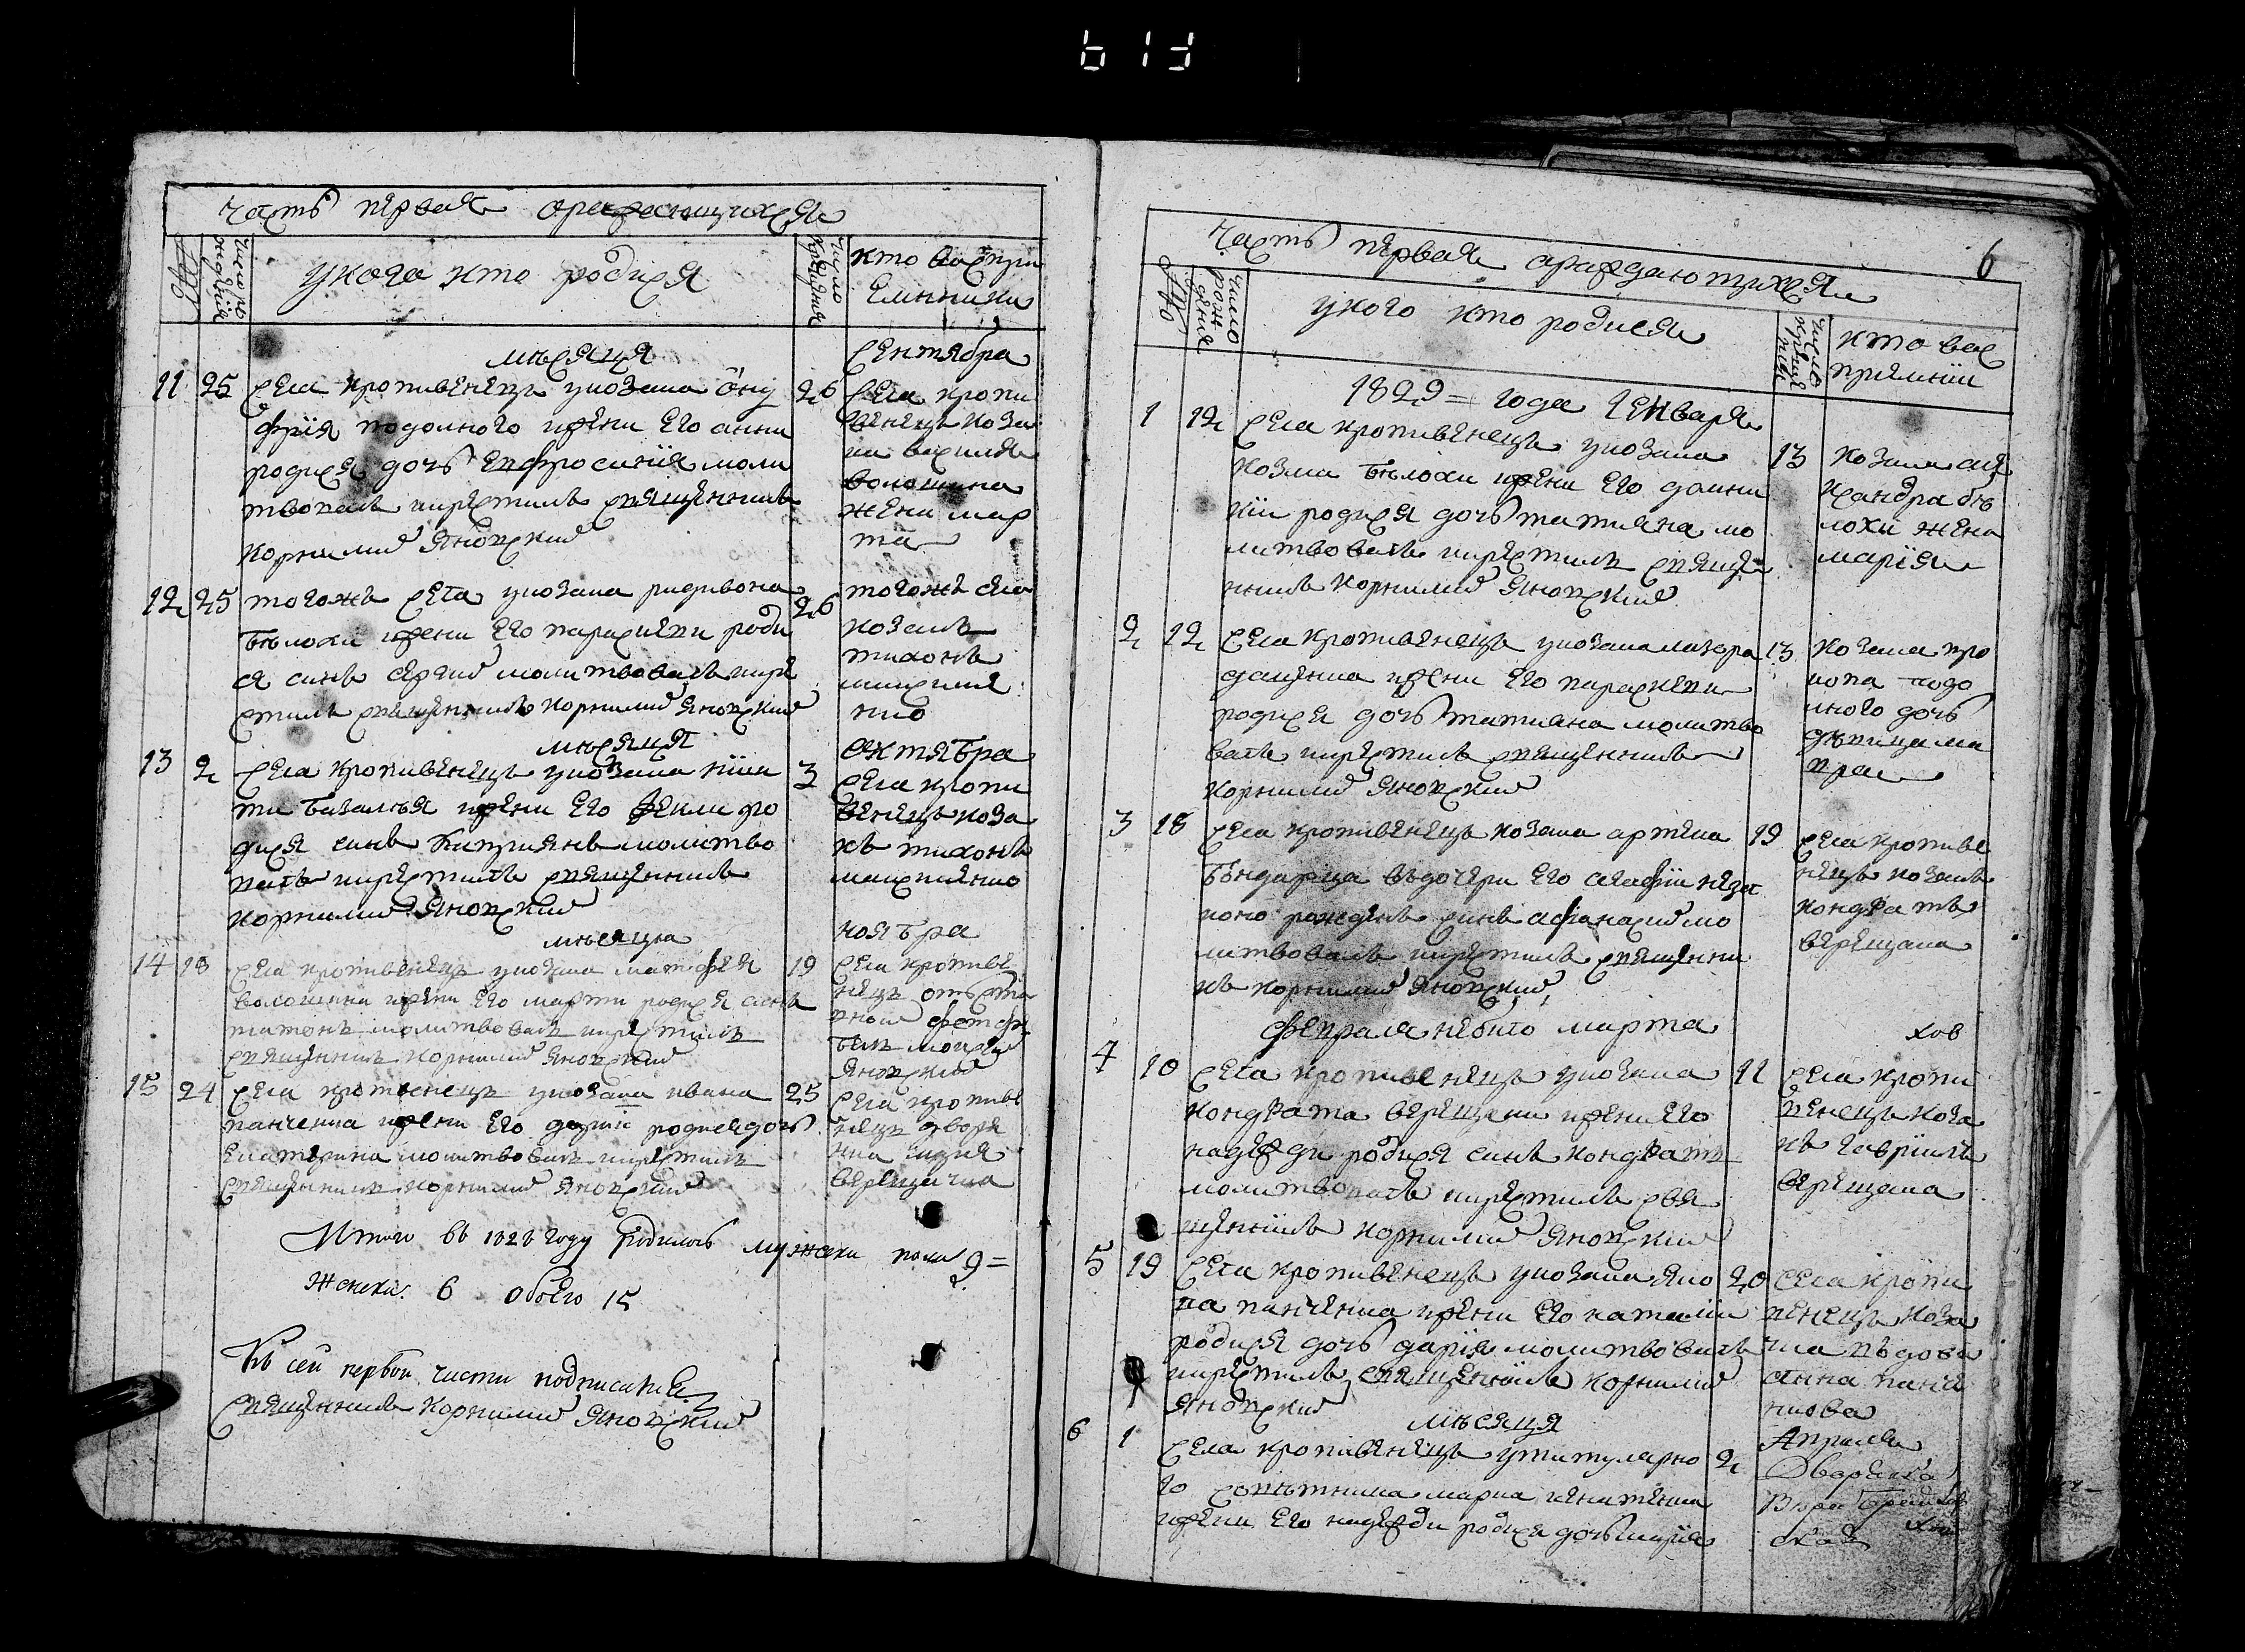 часть первая ораждающихся
число рождения
у кого кто родися
число крещения
кто воспри
емники
мѣсяця
сентября
11 25 села кропивенецъ укозака ону
фрія подолного ижени его анни
родися дочь евфросинія моли
твовалъ икрестилъ священникъ
корнилий яновский
26 села кропи
венецъ коза
ка василя
волошина
жена мар
та
12 25 тогожъ села укозака
бѣлохи ижени его параскеви роди
ся синъ сергий молитвовалъ икре
стилъ священникъ корнилий яновский
26 тогожъ села
козакъ
тихонъ
13 2 села кропивенецъ укозака ники
ти ижени его фекли ро
дися синъ киприянъ молитво
валъ икрестилъ священникъ
корнилий яновский
мѣсяця
октябра
3 села кропи
венецъ коза
къ тихонъ
мѣсяца
ноябра
14 18 села кропивенецъ укозака матфея
волошина ижени его марти родися синъ
молитвовалъ икрестилъ
священникъ корнилий яновский
19 села кропиве
нецъ отста
вной
яновский
15 24 села кропивенецъ укозака ивана
панченка ижени его дарии родися дочь
екатерина молитвовалъ икрестилъ
священникъ корнилий яновский
25 села кропиве
нецъ дворя
нка
верещачка
Итого въ 1828 году родилось мужска пола 9=
женска 6 обоего 15
Къ сей первой части подписался
священникъ корнилий яновский
6
часть первая ораждающихся
число рождения
у кого кто родися
число крещения
кто вос
приемнии
1829= года генваря
1 12 села кропивенецъ укозака
козми бѣлохи ижени его домни
кіи родися дочь татияна мо
литвовалъ икрестилъ свяще
нникъ корнилий яновский
13 козака але
ксандра бѣ
лохи жена
марія
2 12 села кропивенецъ укозака лазора
ижени его параскеви
родися дочь татияна молитво
валъ икрестилъ священникъ
корнилий яновский
13 козака про
копа подо
лного дочь
дѣвица ма
вра
3 18 села кропивенецъ козака артема
бондарца въдочери его агафіи незак
коно рожденъ синъ афанасий мо
литвовалъ икрестилъ священни
къ корнилий яновский
19 села кропиве
нецъ козакъ
кондратъ
верещака
февраля небило марта
4 10 села кропивенецъ укозака
кондрата верещаки ижени его
надежди родися синъ кондратъ
молитвовалъ икрестилъ свя
щенникъ корнилий яновский
11 села кропи
венецъ коза
къ гавріилъ
верещака
5 19 села кропивенецъ укозака яко
ва панченка ижени его наталіи
родися дочь дарія молитвовалъ
икрестилъ священникъ корнилий
яновский
20 села кропи
венецъ коза
чка вдова
анна панче
нкова
мѣсяця
Априля
6 1 села кропивенецъ утитулярно
го совѣтника марка игнатенка
ижени его надежди родися дочь
2 Дворянка